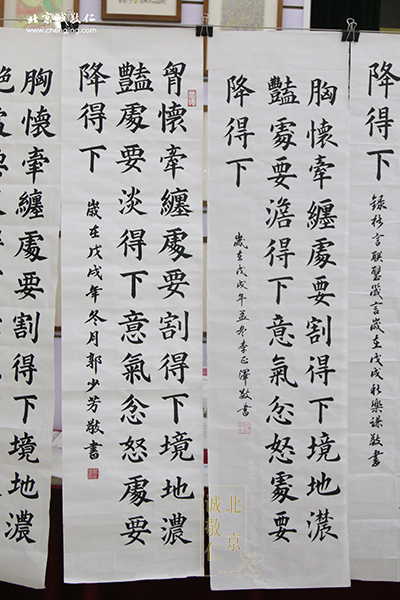 北京誠敬仁
降得下
錄格言聯璧箴言歲在戊戌秋樂謙敬書
胸懷牽纏處要割得下境地濃
豔處要澹得下意氣忿怒處要
降得下
歲在戊戌年孟冬李正澤敬書
胷懷牽纏處要割得下境地濃
豔處要淡得下意氣忿怒處要
降得下
歲在戊戌年冬月郭少芳敬書
胸懷牽纏處要割得下境地濃
北京
誠敬仁